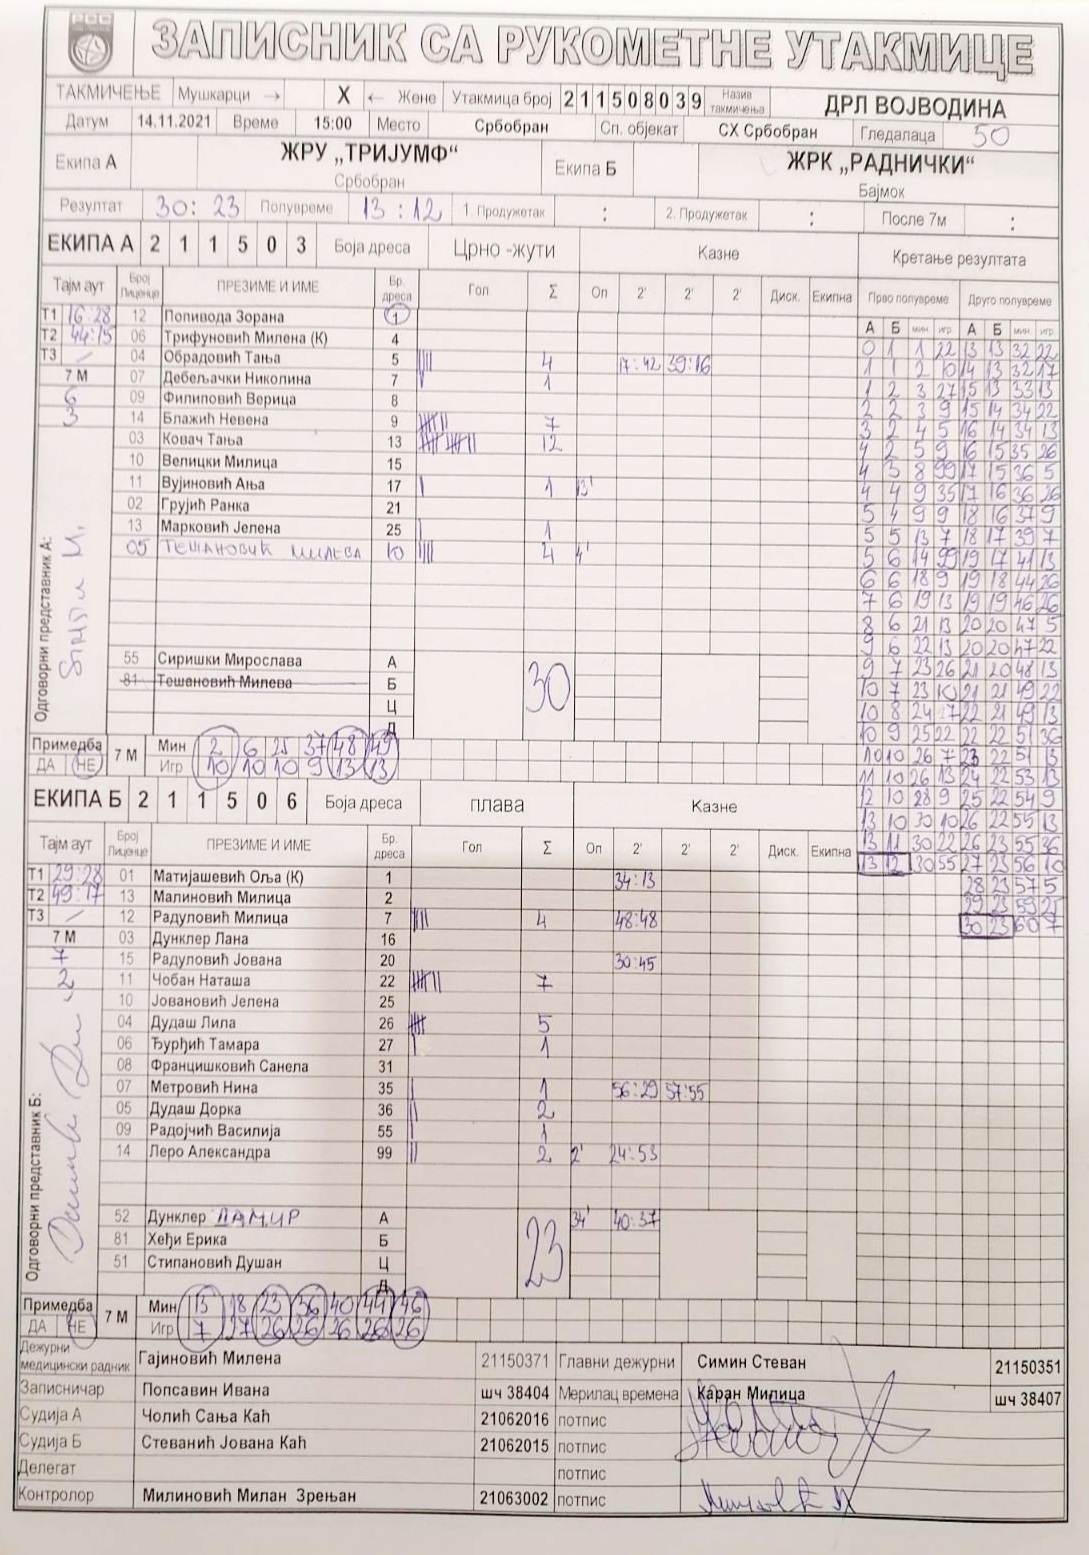 РСС
ЗАПИСНИК СА РУКОМЕТНЕ УТАКМИЦЕ
ТАКМИЧЕЊЕ Мушкарци → X ← Жене Утакмица број 211508039 Назив такмичења ДРЛ ВОЈВОДИНА
Датум 14.11.2021 Време 15:00 Место Србобран Сп. објекат СХ Србобран Гледалаца 50
Екипа А ЖРУ „ТРИЈУМФ“ Србобран Екипа Б ЖРК „РАДНИЧКИ“ Бајмок
Резултат 30:23 Полувреме 13:12 1. Продужетак : 2. Продужетак : После 7м :
ЕКИПА А 2 1 1 5 0 3 Боја дреса Црно -жути Казне Кретање резултата
Тајм аут Број Лиценце ПРЕЗИМЕ И ИМЕ Бр. дреса Гол Σ Оп 2' 2' 2' Диск. Екипна Прво полувреме Друго полувреме
А Б мин. игр. А Б мин. игр.
Т1 16:28 12 Попивода Зорана 1
Т2 44:15 06 Трифуновић Милена (К) 4
Т3 / 04 Обрадовић Тања 5 4 17:42 39:16
7 М 07 Дебељачки Николина 7 1
6 09 Филиповић Верица 8
3 14 Блажић Невена 9 7
03 Ковач Тања 13 12
10 Велицки Милица 15
11 Вујиновић Ања 17 1 13'
02 Грујић Ранка 21
13 Марковић Јелена 25 1
05 ТЕШАНОВИЋ МИЛЕВА 10 4 4'
55 Сиришки Мирослава А
81 Тешановић Милева Б
Ц
Д
30
Одговорни представник А:
0 1 1 22 13 13 32 22
1 1 2 10 14 13 32 17
1 2 3 27 15 13 33 13
2 2 3 9 15 14 34 22
3 2 4 5 16 14 34 13
4 2 5 9 16 15 35 26
4 3 8 99 17 15 36 5
4 4 9 35 17 16 36 26
5 4 9 9 18 16 37 9
5 5 13 7 18 17 39 7
5 6 14 99 19 17 41 13
6 6 18 9 19 18 44 26
7 6 19 13 19 19 46 26
8 6 21 13 20 20 47 5
9 6 22 13 20 20 47 22
9 7 23 26 21 20 48 13
10 7 23 10 21 21 49 22
10 8 24 27 22 21 49 13
10 9 25 22 22 22 51 36
10 10 26 7 23 22 51 13
11 10 26 13 24 22 53 13
12 10 28 9 25 22 54 9
13 10 30 10 26 22 55 13
13 11 30 22 26 23 55 36
13 12 30 55 27 23 56 10
28 23 57 5
29 23 59 21
30 23 60 7
Примедба 7 М Мин 2 6 25 37 48 49
ДА НЕ Игр 10 10 10 9 13 13
ЕКИПА Б 2 1 1 5 0 6 Боја дреса плава Казне
Тајм аут Број Лиценце ПРЕЗИМЕ И ИМЕ Бр. дреса Гол Σ Оп 2' 2' 2' Диск. Екипна
Т1 29:28 01 Матијашевић Оља (К) 1 34:13
Т2 49:17 13 Малиновић Милица 2
Т3 / 12 Радуловић Милица 7 4 48:48
7 М 03 Дунклер Лана 16
7 15 Радуловић Јована 20 30:45
2 11 Чобан Наташа 22 7
10 Јовановић Јелена 25
04 Дудаш Лила 26 5
06 Ђурђић Тамара 27 1
08 Францишковић Санела 31
07 Метровић Нина 35 1 56:29 57:55
05 Дудаш Дорка 36 2
09 Радојчић Василија 55 1
14 Леро Александра 99 2 2' 24:53
52 Дунклер ДАМИР А 34' 40:37
81 Хеђи Ерика Б
51 Стипановић Душан Ц
Д
23
Одговорни представник Б:
Примедба 7 М Мин 13 18 23 36 40 44 46
ДА НЕ Игр 7 27 26 26 26 26 26
Дежурни медицински радник Гајиновић Милена 21150371 Главни дежурни Симин Стеван 21150351
Записничар Попсавин Ивана шч 38404 Мерилац времена Каран Милица шч 38407
Судија А Чолић Сања Каћ 21062016 потпис
Судија Б Стеванић Јована Каћ 21062015 потпис
Делегат потпис
Контролор Милиновић Милан Зрењан 21063002 потпис